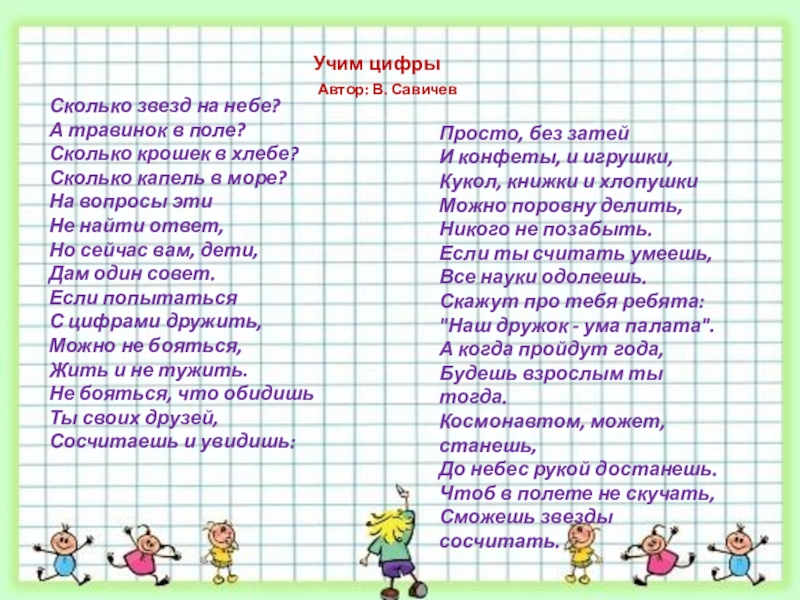 Учим цифры
Автор: В. Савичев
Сколько звезд на небе?
А травинок в поле?
Сколько крошек в хлебе?
Сколько капель в море?
На вопросы эти
Не найти ответ,
Но сейчас вам, дети,
Дам один совет.
Если попытаться
С цифрами дружить,
Можно не бояться,
Жить и не тужить.
Не бояться, что обидишь
Ты своих друзей,
Сосчитаешь и увидишь:
Просто, без затей
И конфеты, и игрушки,
Кукол, книжки и хлопушки
Можно поровну делить,
Никого не позабыть.
Если ты считать умеешь,
Все науки одолеешь.
Скажут про тебя ребята:
"Наш дружок - ума палата".
А когда пройдут года,
Будешь взрослым ты
тогда.
Космонавтом, может,
станешь,
До небес рукой достанешь.
Чтоб в полете не скучать,
Сможешь звезды
сосчитать.